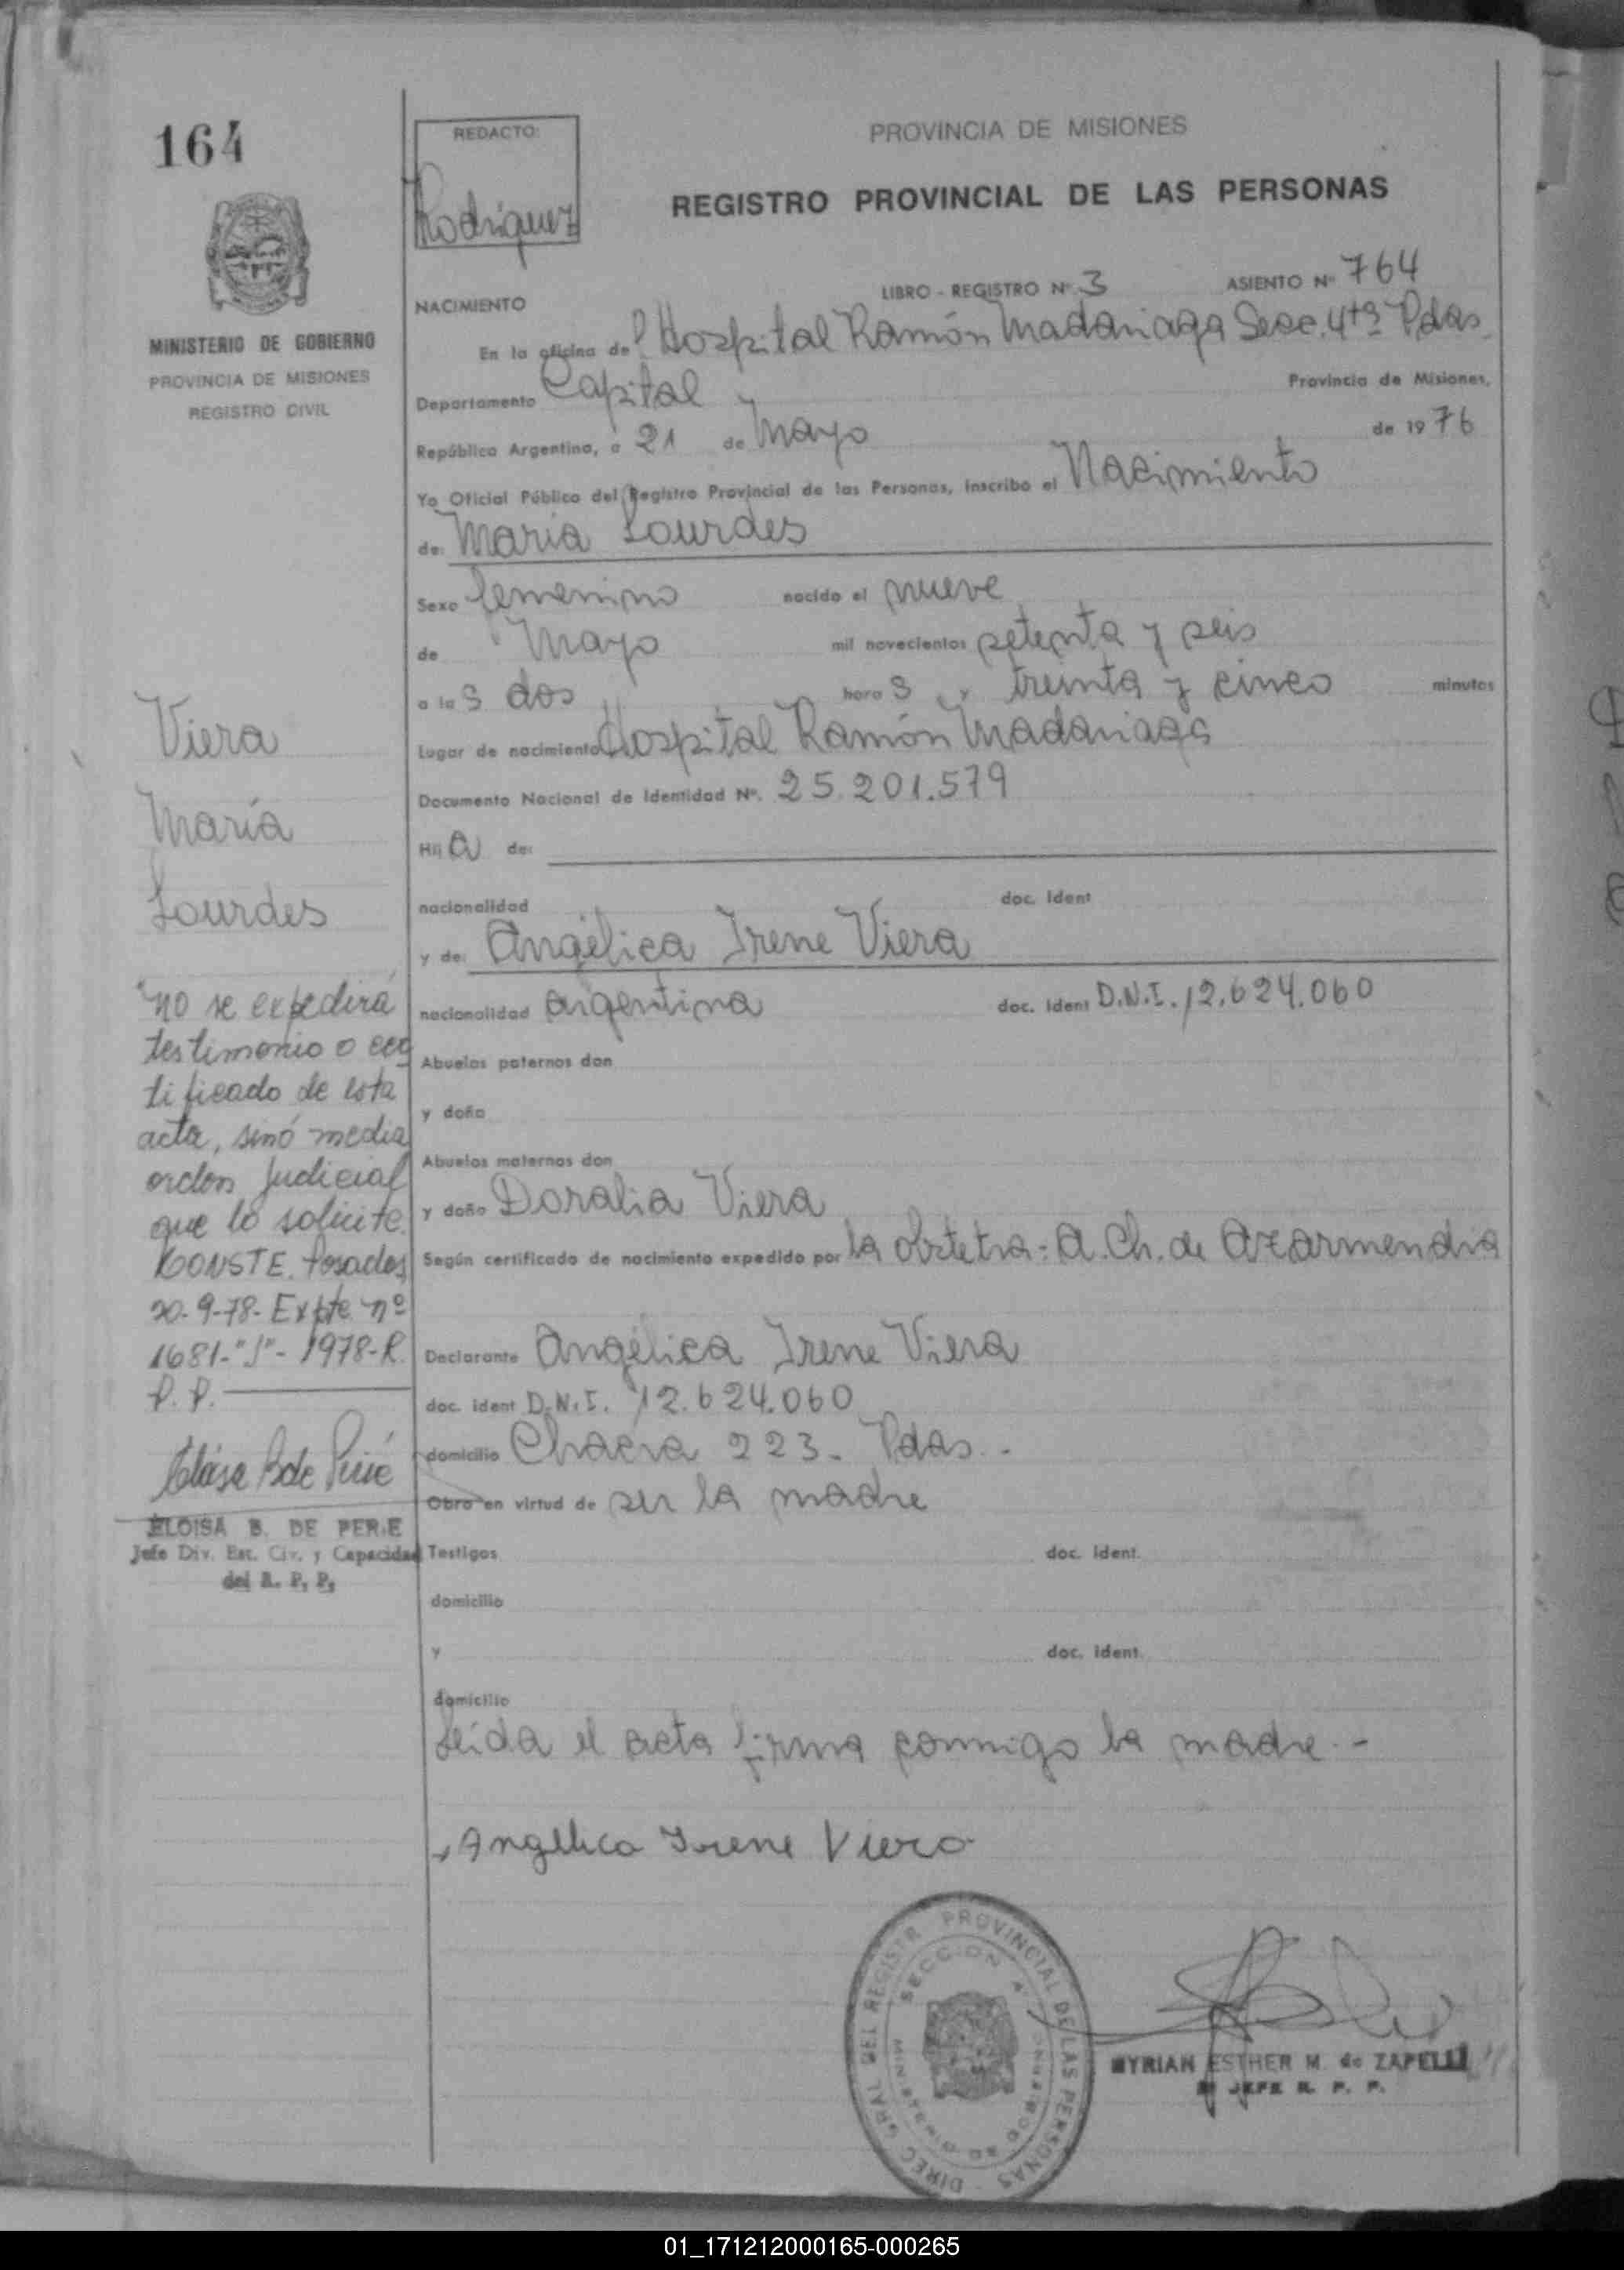 164
REDACTO:
Rodríguez
PROVINCIA DE MISIONES
REGISTRO PROVINCIAL DE LAS PERSONAS
MINISTERIO DE GOBIERNO
PROVINCIA DE MISIONES
REGISTRO CIVIL
LIBRO - REGISTRO Nº 3 ASIENTO Nº 764
NACIMIENTO
En la oficina del Hospital Ramón Madariaga Secc. 4ta Pdas.
Departamento Capital Provincia de Misiones,
República Argentina, a 21 de Mayo de 1976
Yo Oficial Público del Registro Provincial de las Personas, inscribo el Nacimiento
de: María Lourdes
Sexo femenino nacido el nueve
de Mayo mil novecientos setenta y seis
a las dos horas y treinta y cinco minutos
Lugar de nacimiento Hospital Ramón Madariaga
Documento Nacional de Identidad Nº. 25.201.579
Hija de:
nacionalidad doc. Ident
y de: Angélica Irene Viera
nacionalidad argentina doc. Ident D.N.I. 12.624.060
Abuelos paternos don
y doña
Abuelos maternos don
y doña Doralia Viera
Según certificado de nacimiento expedido por la obstetra: A. Ch. de Azarmendia
Declarante Angélica Irene Viera
doc. ident D.N.I. 12.624.060
domicilio Chacra 223 - Pdas. -
Obra en virtud de ser la madre
Testigos doc. ident.
domicilio
y doc. ident.
domicilio
Leída el acta firma conmigo la madre. -
Angelica Irene Viera
Viera
María
Lourdes
"no se expedirá
testimonio o cer
tificado de esta
acta, sinó media
orden Judicial
que lo solicite.
CONSTE. Posadas
20-9-78- Expte nº
1681-"S"-1978-R.
P. P.
Eloisa B de Perié
ELOISA B. DE PERIE
Jefe Div. Est. Civ. y Capacidad
del R. P. P.
DIREC. GRAL DEL REGISTR. PROVINCIAL DE LAS PERSONAS
SECCION 4ª
MYRIAN ESTHER M. de ZAPELLI
JEFE R. P. P.
01_171212000165-000265